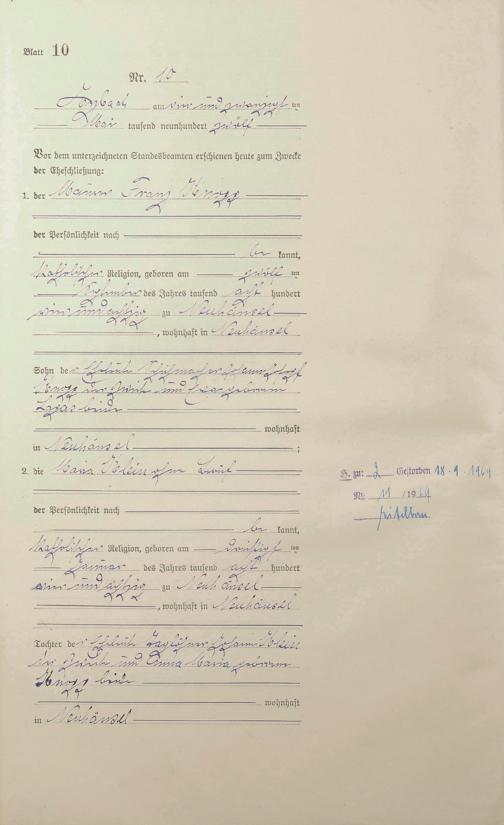 Blatt 10
Nr. 10
am vier und zwanzigsten
Mai tausend neunhundert zwölf
Vor dem unterzeichneten Standesbeamten erschienen heute zum Zwecke
der Eheschließung:
1. der Maurer Franz Knopp
der Persönlichkeit nach
be kannt,
katholischer Religion, geboren am zwölften
September des Jahres tausend acht hundert
vier und achtzig zu Neuhäusel
, wohnhaft in Neuhäusel
Sohn der
Knopp und geborenen
beide
wohnhaft
in Neuhäusel ;
2. die Maria Klein ohne Beruf
der Persönlichkeit nach
be kannt,
katholischer Religion, geboren am dreißigsten
Januar des Jahres tausend acht hundert
vier und achtzig zu Neuhäusel
, wohnhaft in Neuhäusel
Tochter der Eheleute Taglöhner Johann Klein
und Anna Maria geborenen
Knopp beide
wohnhaft
in Neuhäusel
S. zu: 2 Gestorben 18.9.1964
Nr. 11 /1964